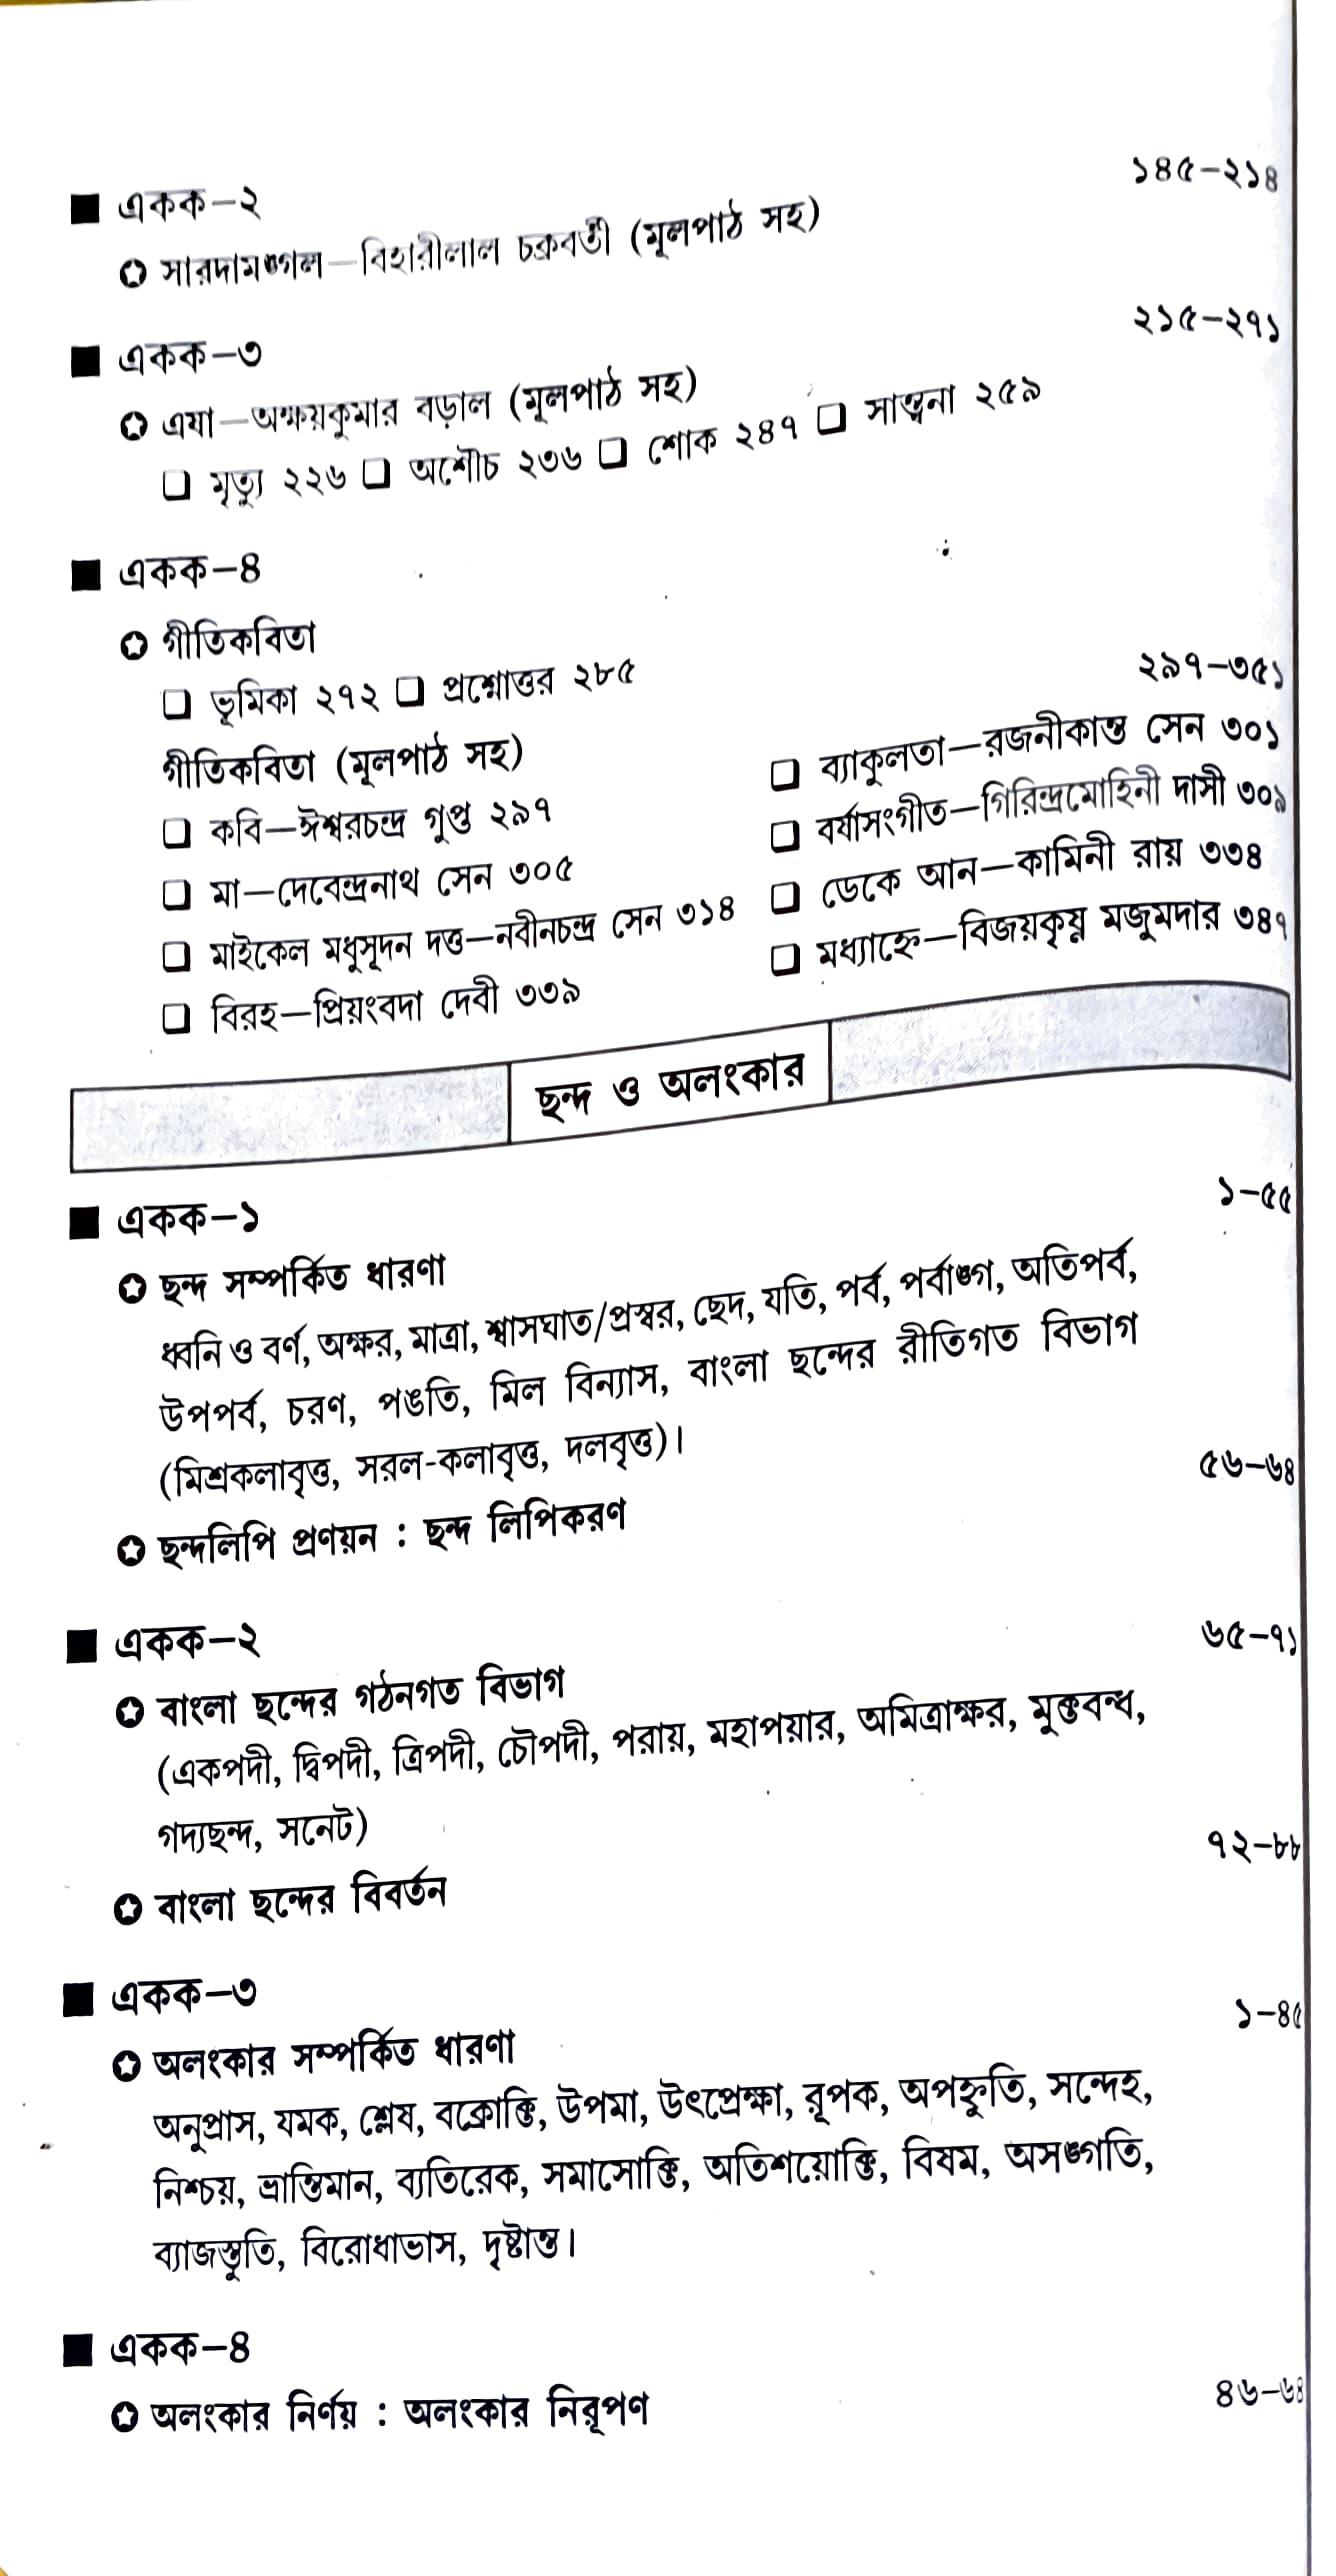 ■ একক–২
১৪৫–২১৪
✪ সারদামঙ্গল—বিহারীলাল চক্রবর্তী (মূলপাঠ সহ)
■ একক–৩
২১৫–২৭১
✪ এষা—অক্ষয়কুমার বড়াল (মূলপাঠ সহ)
❏ মৃত্যু ২২৬ ❏ অশৌচ ২৩৬ ❏ শোক ২৪৭ ❏ সান্ত্বনা ২৫৯
■ একক–৪
✪ গীতিকবিতা
❏ ভূমিকা ২৭২ ❏ প্রশ্নোত্তর ২৮৫
গীতিকবিতা (মূলপাঠ সহ)
২৯৭–৩৫১
❏ কবি—ঈশ্বরচন্দ্র গুপ্ত ২৯৭
❏ ব্যাকুলতা—রজনীকান্ত সেন ৩০১
❏ মা—দেবেন্দ্রনাথ সেন ৩০৫
❏ বর্ষাসংগীত—গিরিন্দ্রমোহিনী দাসী ৩০৯
❏ মাইকেল মধুসূদন দত্ত—নবীনচন্দ্র সেন ৩১৪
❏ ডেকে আন—কামিনী রায় ৩৩৪
❏ বিরহ—প্রিয়ংবদা দেবী ৩৩৯
❏ মধ্যাহ্নে—বিজয়কৃষ্ণ মজুমদার ৩৪৭
ছন্দ ও অলংকার
■ একক–১
১–৫৫
✪ ছন্দ সম্পর্কিত ধারণা
ধ্বনি ও বর্ণ, অক্ষর, মাত্রা, শ্বাসঘাত/প্রস্বর, ছেদ, যতি, পর্ব, পর্বাঙ্গ, অতিপর্ব,
উপপর্ব, চরণ, পঙতি, মিল বিন্যাস, বাংলা ছন্দের রীতিগত বিভাগ
(মিশ্রকলাবৃত্ত, সরল-কলাবৃত্ত, দলবৃত্ত)।
✪ ছন্দলিপি প্রণয়ন : ছন্দ লিপিকরণ
৫৬–৬৪
■ একক–২
✪ বাংলা ছন্দের গঠনগত বিভাগ
৬৫–৭১
(একপদী, দ্বিপদী, ত্রিপদী, চৌপদী, পরায়, মহাপয়ার, অমিত্রাক্ষর, মুক্তবন্ধ,
গদ্যছন্দ, সনেট)
✪ বাংলা ছন্দের বিবর্তন
৭২–৮৮
■ একক–৩
✪ অলংকার সম্পর্কিত ধারণা
১–৪৫
অনুপ্রাস, যমক, শ্লেষ, বক্রোক্তি, উপমা, উৎপ্রেক্ষা, রূপক, অপহ্নুতি, সন্দেহ,
নিশ্চয়, ভ্রান্তিমান, ব্যতিরেক, সমাসোক্তি, অতিশয়োক্তি, বিষম, অসঙ্গতি,
ব্যাজস্তুতি, বিরোধাভাস, দৃষ্টান্ত।
■ একক–৪
✪ অলংকার নির্ণয় : অলংকার নিরূপণ
৪৬–৬৪